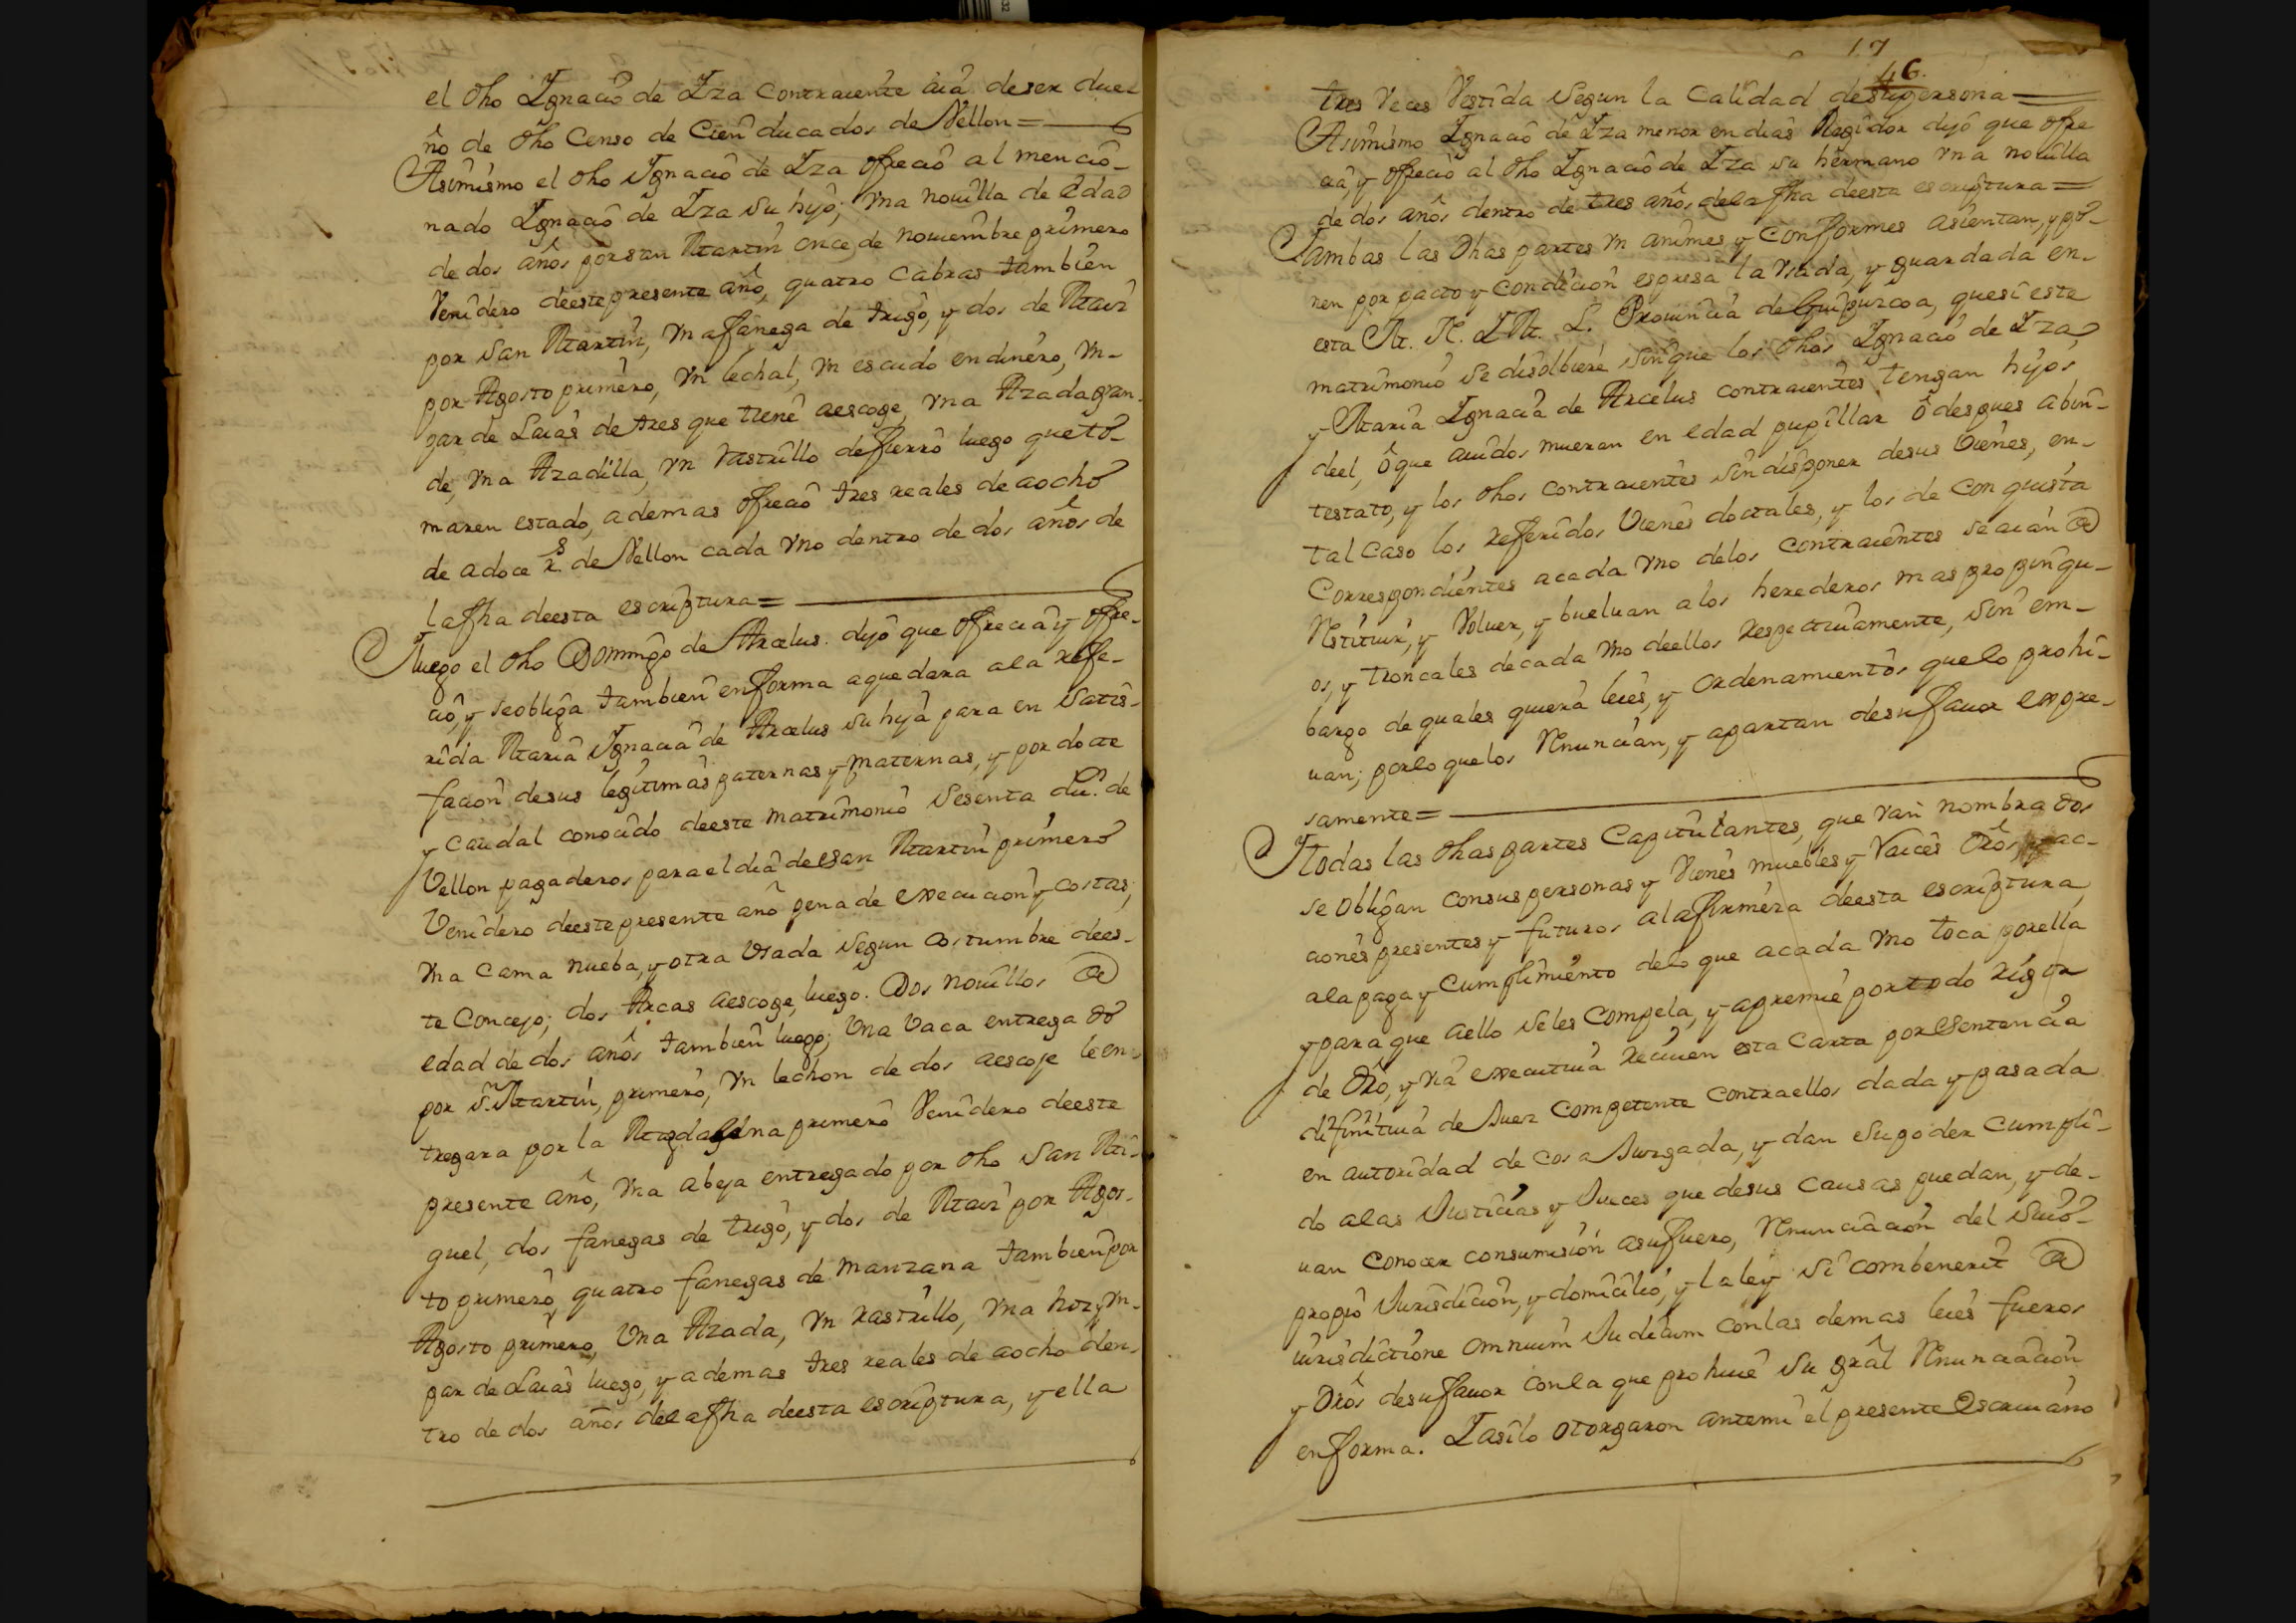 el dho Ignacio de Iza contraiente aia de ser due-
ño de dho Censo de Cien ducados de Vellon=
Asimismo el dho Ignacio de Iza ofrecio al mencio-
nado Ignacio de Iza su hijo, vna nouilla de edad
de dos años por san Martin once de nouiembre primero
Venidero deeste presente año, quatro cabras tambien
por san Martin, vna fanega de trigo, y dos de Maiz
por Agosto primero, vn lechal, vn escudo en dinero, vn
par de Laias de tres que tiene aescoge, vna Azada gran-
de, vna Azadilla, vn rastrillo de fierro luego que to-
maren estado, ademas ofrecio tres reales de aocho
de adoce rs. de Vellon cada vno dentro de dos años de
la fha deesta escriptura=
Iluego el dho Domingo de Arcelus dijo que ofrecia y ofre-
cio, y se obliga tambien en forma a que dara ala refe-
rida Maria Ignacia de Arcelus su hija para en satis-
facion de sus legitimas paternas y maternas, y por docte
y caudal conocido deeste matrimonio sesenta du.s de
Vellon pagaderos para el dia de san Martin primero
Venidero deeste presente año pena de execucion y costas,
vna cama nueba, y otra vsada segun costumbre dees-
te Concejo; dos Arcas aescoge, luego. Dos nouillos de
edad de dos años tambien luego; Vna Vaca entrega do
por S. Martin, primero, vn lechon de dos aescoje le en-
tregara por la Magdalena primero Venidero deeste
presente año, vna abeja entregado por dho San Mi-
guel, dos fanegas de trigo, y dos de Maiz por Agos-
to primero, quatro fanegas de manzana tambien por
Agosto primero, Vna Azada, vn rastrillo, vna hoz y vn
par de Laias luego, y ademas tres reales de aocho den-
tro de dos años dela fha deesta escriptura, y ella
17
46.
tres veces vestida segun la calidad de su persona=
Asimismo Ignacio de Iza menor en dias Regidor dijo que ofre
cia, y ofrecio al dho Ignacio de Iza su hermano vna nouilla
de dos años dentro de tres años dela fha deesta escriptura=
Iambas las dhas partes vn animes y conformes asientan, y po-
nen por pacto y condicion espresa la vsada, y guardada en-
esta M. N. I M. L. Prouincia de Guipuzcoa, que si este
matrimonio se disolbiere, sin que los dhos Ignacio de Iza,
y Maria Ignacia de Arcelus contraientes tengan hijos
deel, ô que auidos mueran en edad pupillar ô despues abin-
testato, y los dhos contraientes sin disponer desus vienes, en-
tal caso los referidos Vienes doctales, y los de conquista
Correspondientes acada vno delos contraientes se aian de
Restituir, y Voluer, y bueluan a los herederos mas propinqu-
os, y troncales decada vno deellos respectiuamente, sin em-
bargo de quales quiera leies, y ordenamientos que lo prohi-
uan; por lo que los Renuncian, y apartan desu fauor expre-
samente=
Itodas las dhas partes Capitulantes, que van nombrados
se obligan con sus personas y Vienes muebles y Raices Dros, y ac-
ciones presentes y futuros ala firmeza deesta escriptura,
ala paga y cumplimiento delo que acada vno toca por ella
y para que aello se les compela, y apremie por todo rigor
de Dro, y via executiua reciuen esta Carta por Sentencia
difinitiua de Juez competente contra ellos dada y pasada
en autoridad de cosa Juzgada, y dan su poder cumpli-
do alas Justicias y Jueces que desus causas puedan, y de-
uan conocer con sumision asu fuero, Renunciacion del suio
propio Jurisdicion, y domicilio, y la ley si combenerit de
iurisdictione omnium Judicum con las demas leies fueros
y Dros desu fauor con la que prohiue su gral Renunciacion
en forma. I asi lo otorgaron ante mi el presente Escriuano